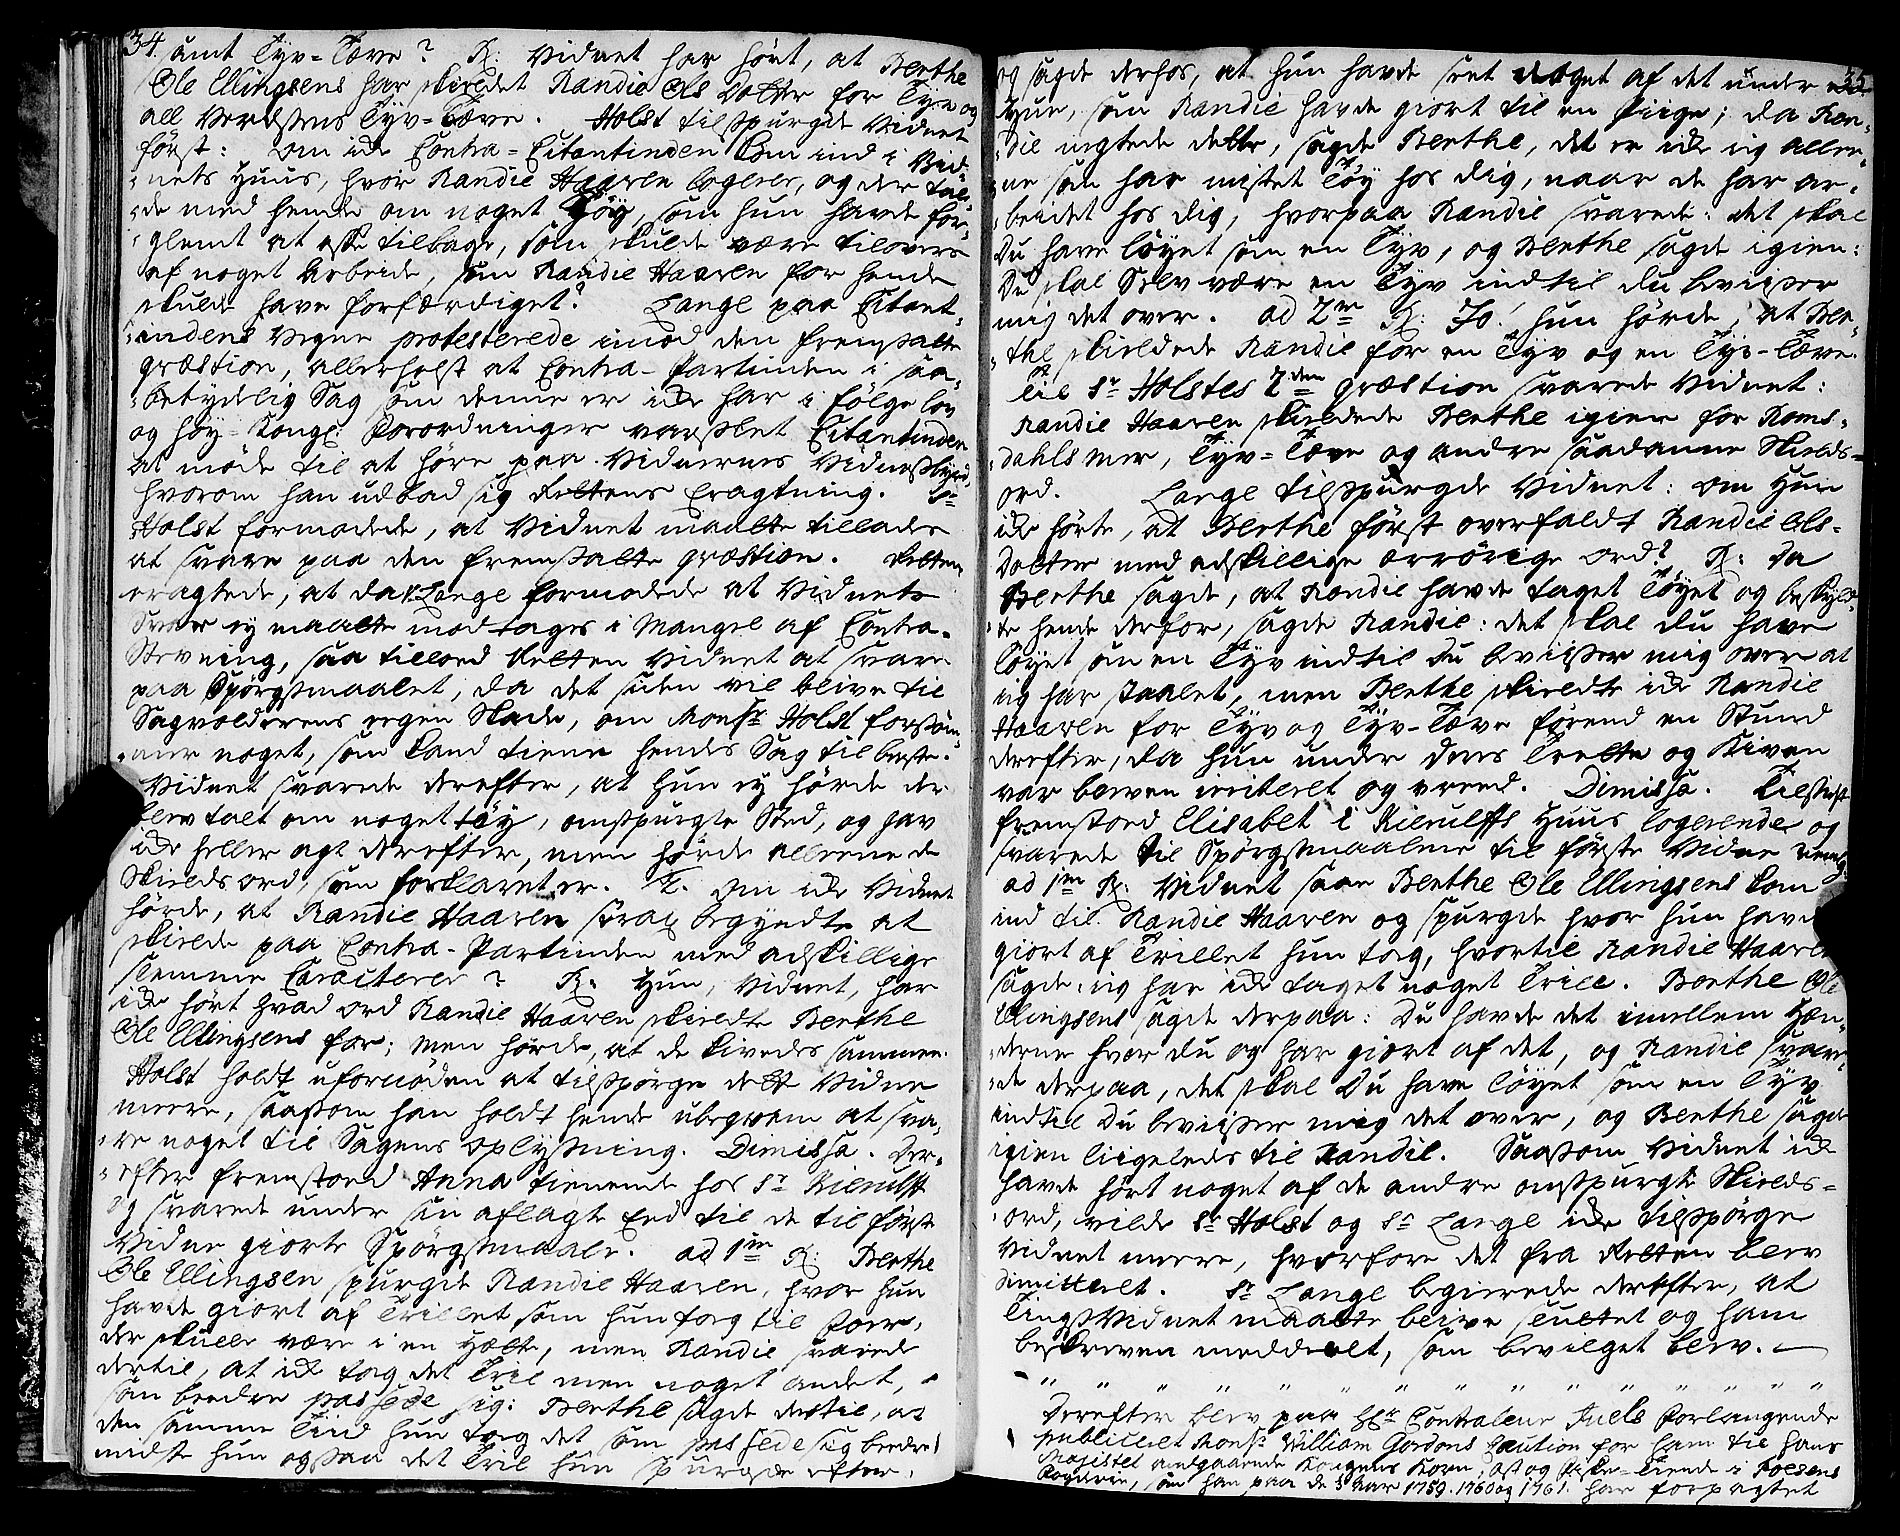 34.
samt Tyv-Tæve? R: Vidnet har hørt, at Berthe
Ole Ellingsens har skieldet Randie Ols Datter for Tyv og
all Verdssens Tyv-Tæve. Holst tilsspurgte Vidnet
først: Om icke Contra-Citantinden kom ind i Vid-
nets Huus, hvor Randie Haaren logerer, og der tal-
de med hende om noget Tøy, som hun havde for-
glemt at tilbage, som skulde være tilovers
af noget Arbeide, som Randie Haaren for hende
skulde have forfærdiget? Lange paa Citant-
indens Vegne protesterede imod den fremsatte
qvæstion, allerhelst at Contra-Partinden i saa
betydelig Sag som denne er icke har i følge lov
og høy-Kongl: Forordninger varsslet Citantinden
at møde til at høre paa Vidnernes Vidnessbyrd,
hvorom han udbad sig Rettens Eragtning. Sr
Holst formodede, at Vidnet maatte tillades
at svare paa den fremsatte qvæstion. Retten
eragtede, at da Lange formodede at Vidnets
Svar ey maatte modtages i Mangel af Contra-
Stevning, saa tillod Retten Vidnet at svare
paa Spørgsmaalet, da det siden vil blive til
Sagvolderens egen Skade, om Monsr Holst forsøm-
mer noget, som kand tiene hendes Sag til beste.
Vidnet svarede derefter, at hun ey hørde der
blev talt om noget tøy, omsspurgte Sted, og gav
icke heller agt derefter, men hørde alleene de
Skieldsord, som forklaret er. 2. Om icke Vidnet
hørde, at Randie Haaren strax begyndte at
skielde paa Contra-Partinden med adskillige
slemme Caracterer? R: Hun, Vidnet, har
icke hørt hvad ord Randie Haaren skieldte Berthe
Ole Ellingsens for; men hørde, at de kivedes sammen.
Holst holdt ufornøden at tilsspørge dette Vidne
meere, saassom han holdt hende ubeqvem at sva-
re noget til Sagens oplyssning. Dimissa. Der-
efter fremstoed Anna tienende hos Sr Kierulff
og svarede under sin aflagte Eed til de til første
Vidne giorte Spørgsmaale. ad 1me R: Berthe
Ole Ellingsen spurgte Randie Haaren, hvor hun
havde giort af Trillet som hun tog til Foer,
der skulle være i en Hætte, men Randie svarede
dertil, at icke tog det Tril men noget andet,
som beedre passede sig: Berthe sagde dertil, at
den samme Tiid hun tog det som passede sig beedre
miste hun ogsaa det Tril hun spurgde efter,
35
og sagde derhos, at hun havde seet noget af det under
Hue, som Randie havde giort til en Piige; da Ran-
die negtede dette, sagde Berthe, det er icke ieg allee-
ne som har mistet Tøy hos dig, naar de har ar-
beidet hos dig, hvorpaa Randie svarede: det skal
Du have løyet som en Tyv, og Berthe sagde igien:
Du skal Selv være en Tyv indtil du beviisser
mig det over. ad 2me R: Jo! hun hørde, at Ber-
the skieldede Randie for en Tyv og en Tyv-Tæve.
Til Sr Holstes 2den qvæstion svarede Vidnet:
Randie Haaren skieldede Berthe igien for Roms-
dahls Mær, Tyv-Tæve og andre saadanne Skields-
ord. Lange tilsspurgde Vidnet: om Hun
icke hørte, at Berthe først overfaldt Randie Ols-
Datter med adskillige ærrørige ord? R: Da
Berthe sagde, at Randie havde taget Tøyet og beskyld-
te hende derfor, sagde Randie: det skal du have
løyet som en Tyv indtil du beviisser mig over at
ieg har staalet, men Berthe skieldte icke Randie
Haaren for Tyv og Tyv-Tæve førend en Stund
derefter, da hun under deres Trette og Kiven
var bleven irriteret og vreed. Dimissa. Tilssidst
fremstoed Elisabet i Kierulffs Huus logerende og
svarede til Spørgsmaalene til første Vidne nemlg:
ad 1me R: Vidnet saae Berthe Ole Ellingsens kom
ind til Randie Haaren og spurgde hvor hun havde
giort af Trillet hun tog, hvortil Randie Haaren
sagde: ieg har icke taget noget Trill. Berthe Ole
Ellingsens sagde derpaa: Du havde det imellem Hæn-
derne hvor du og har giort af det, og Randie svare-
de derpaa, det skal Du have løyet som en Tyv
indtil Du beviisser mig det over, og Berthe sagde
igien liigeledes til Randie. Saassom Vidnet icke
havde hørt noget af de andre omsspurgte Skields-
ord, vilde Sr Holst og Sr Lange icke tilsspørge
Vidnet meere, hvorfore det fra Retten blev
dimitteret. Sr Lange begierede derefter, at
TingsVidnet maatte blive sluttet og ham
beskreven meddeelt, som bevilget blev.
Derefter blev paa Hr Controleur Juels Forlangende
Publiceret Monsr William Gordons Caution for ham til hans
Majestet andgaaende Kongens Korn, ost og Fiske-Tiende i Foesens
Fogderie, som han paa de 3 Aar 1759. 1760 og 1761. har forpagtet